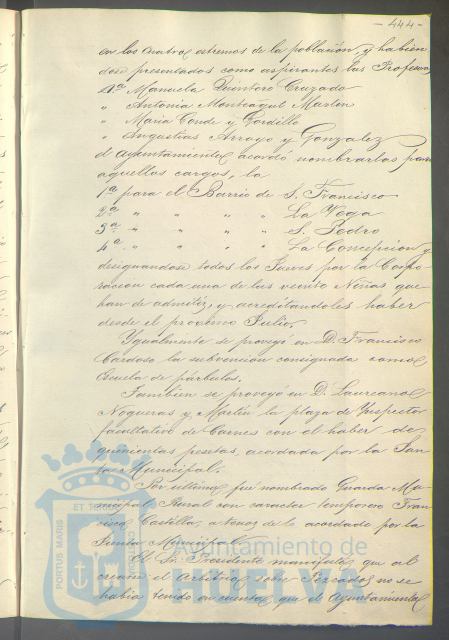 - 444 -
en los cuatro estremos de la población, y habien
dose presentados como aspirantes las Profesoras
D.ª Manuela Quintero Cruzado
" Antonia Monteagut Martin
" Maria Conde y Gordillo
" Angustias Arroyo y Gonzalez
el Ayuntamiento acordó nombrarlas para
aquellos cargos, la
1ª para el Barrio de S. Francisco
2ª " " " " La Vega
3ª " " " " S. Pedro
4ª " " " " La Concepcion y
designandose todos los Jueves por la Corpo
racion cada una de las veinte Niñas que
han de admitir, y acreditandoles haber
desde el proximo Julio.
Ygualmente se proveyó en D. Francisco
Cardoso la subvencion consignada como
Escuela de párbulos.
Tambien se proveyó en D. Laureano
Nogueras y Martin la plaza de Ynspector
facultativo de Carnes con el haber de
quinientas pesetas, acordada por la Jun
ta Municipal.
Por ultimo fué nombrado Guarda Mu
nicipal Rural con caracter temporero Fran
cisco Castilla, a tenor de lo acordado por la
Junta Municipal.
El Sr. Presidente manifestó que al
crearse el arbitrio sobre Pescados no se
habia tenido en cuenta que el Ayuntamiento
Ayuntamiento de
PORTUS MARIS
ET TERRAE